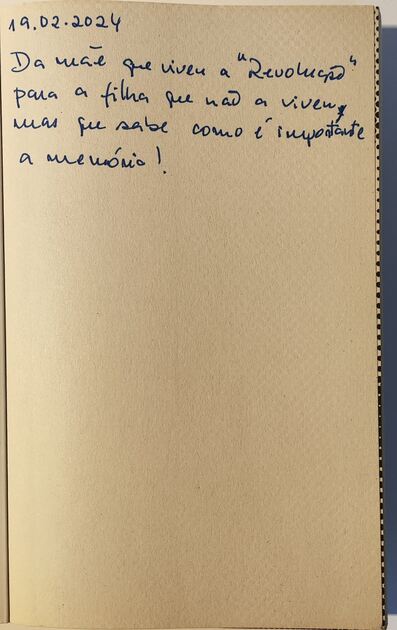 19.02.2024
Da mãe que viveu a "Revolução"
para a filha que não a viveu,
mas que sabe como é importante
a memória!